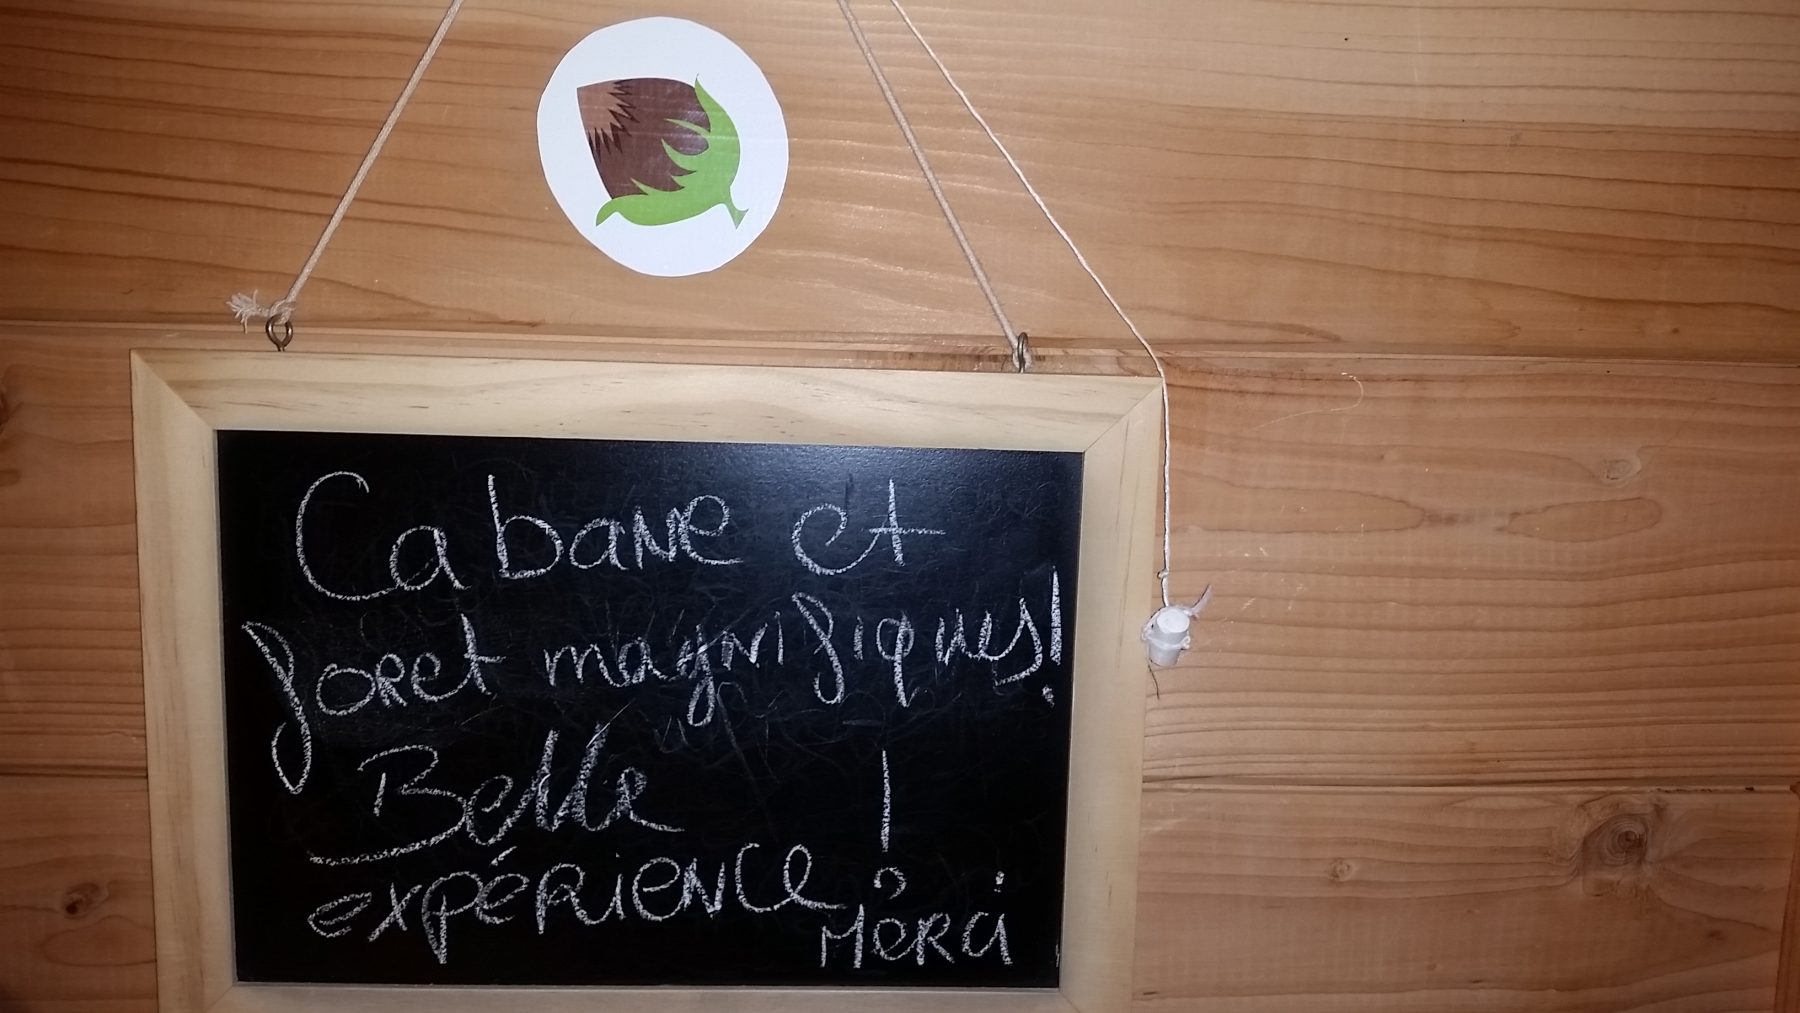 Cabane et
foret magnifiques!
Belle
expérience!
Merci